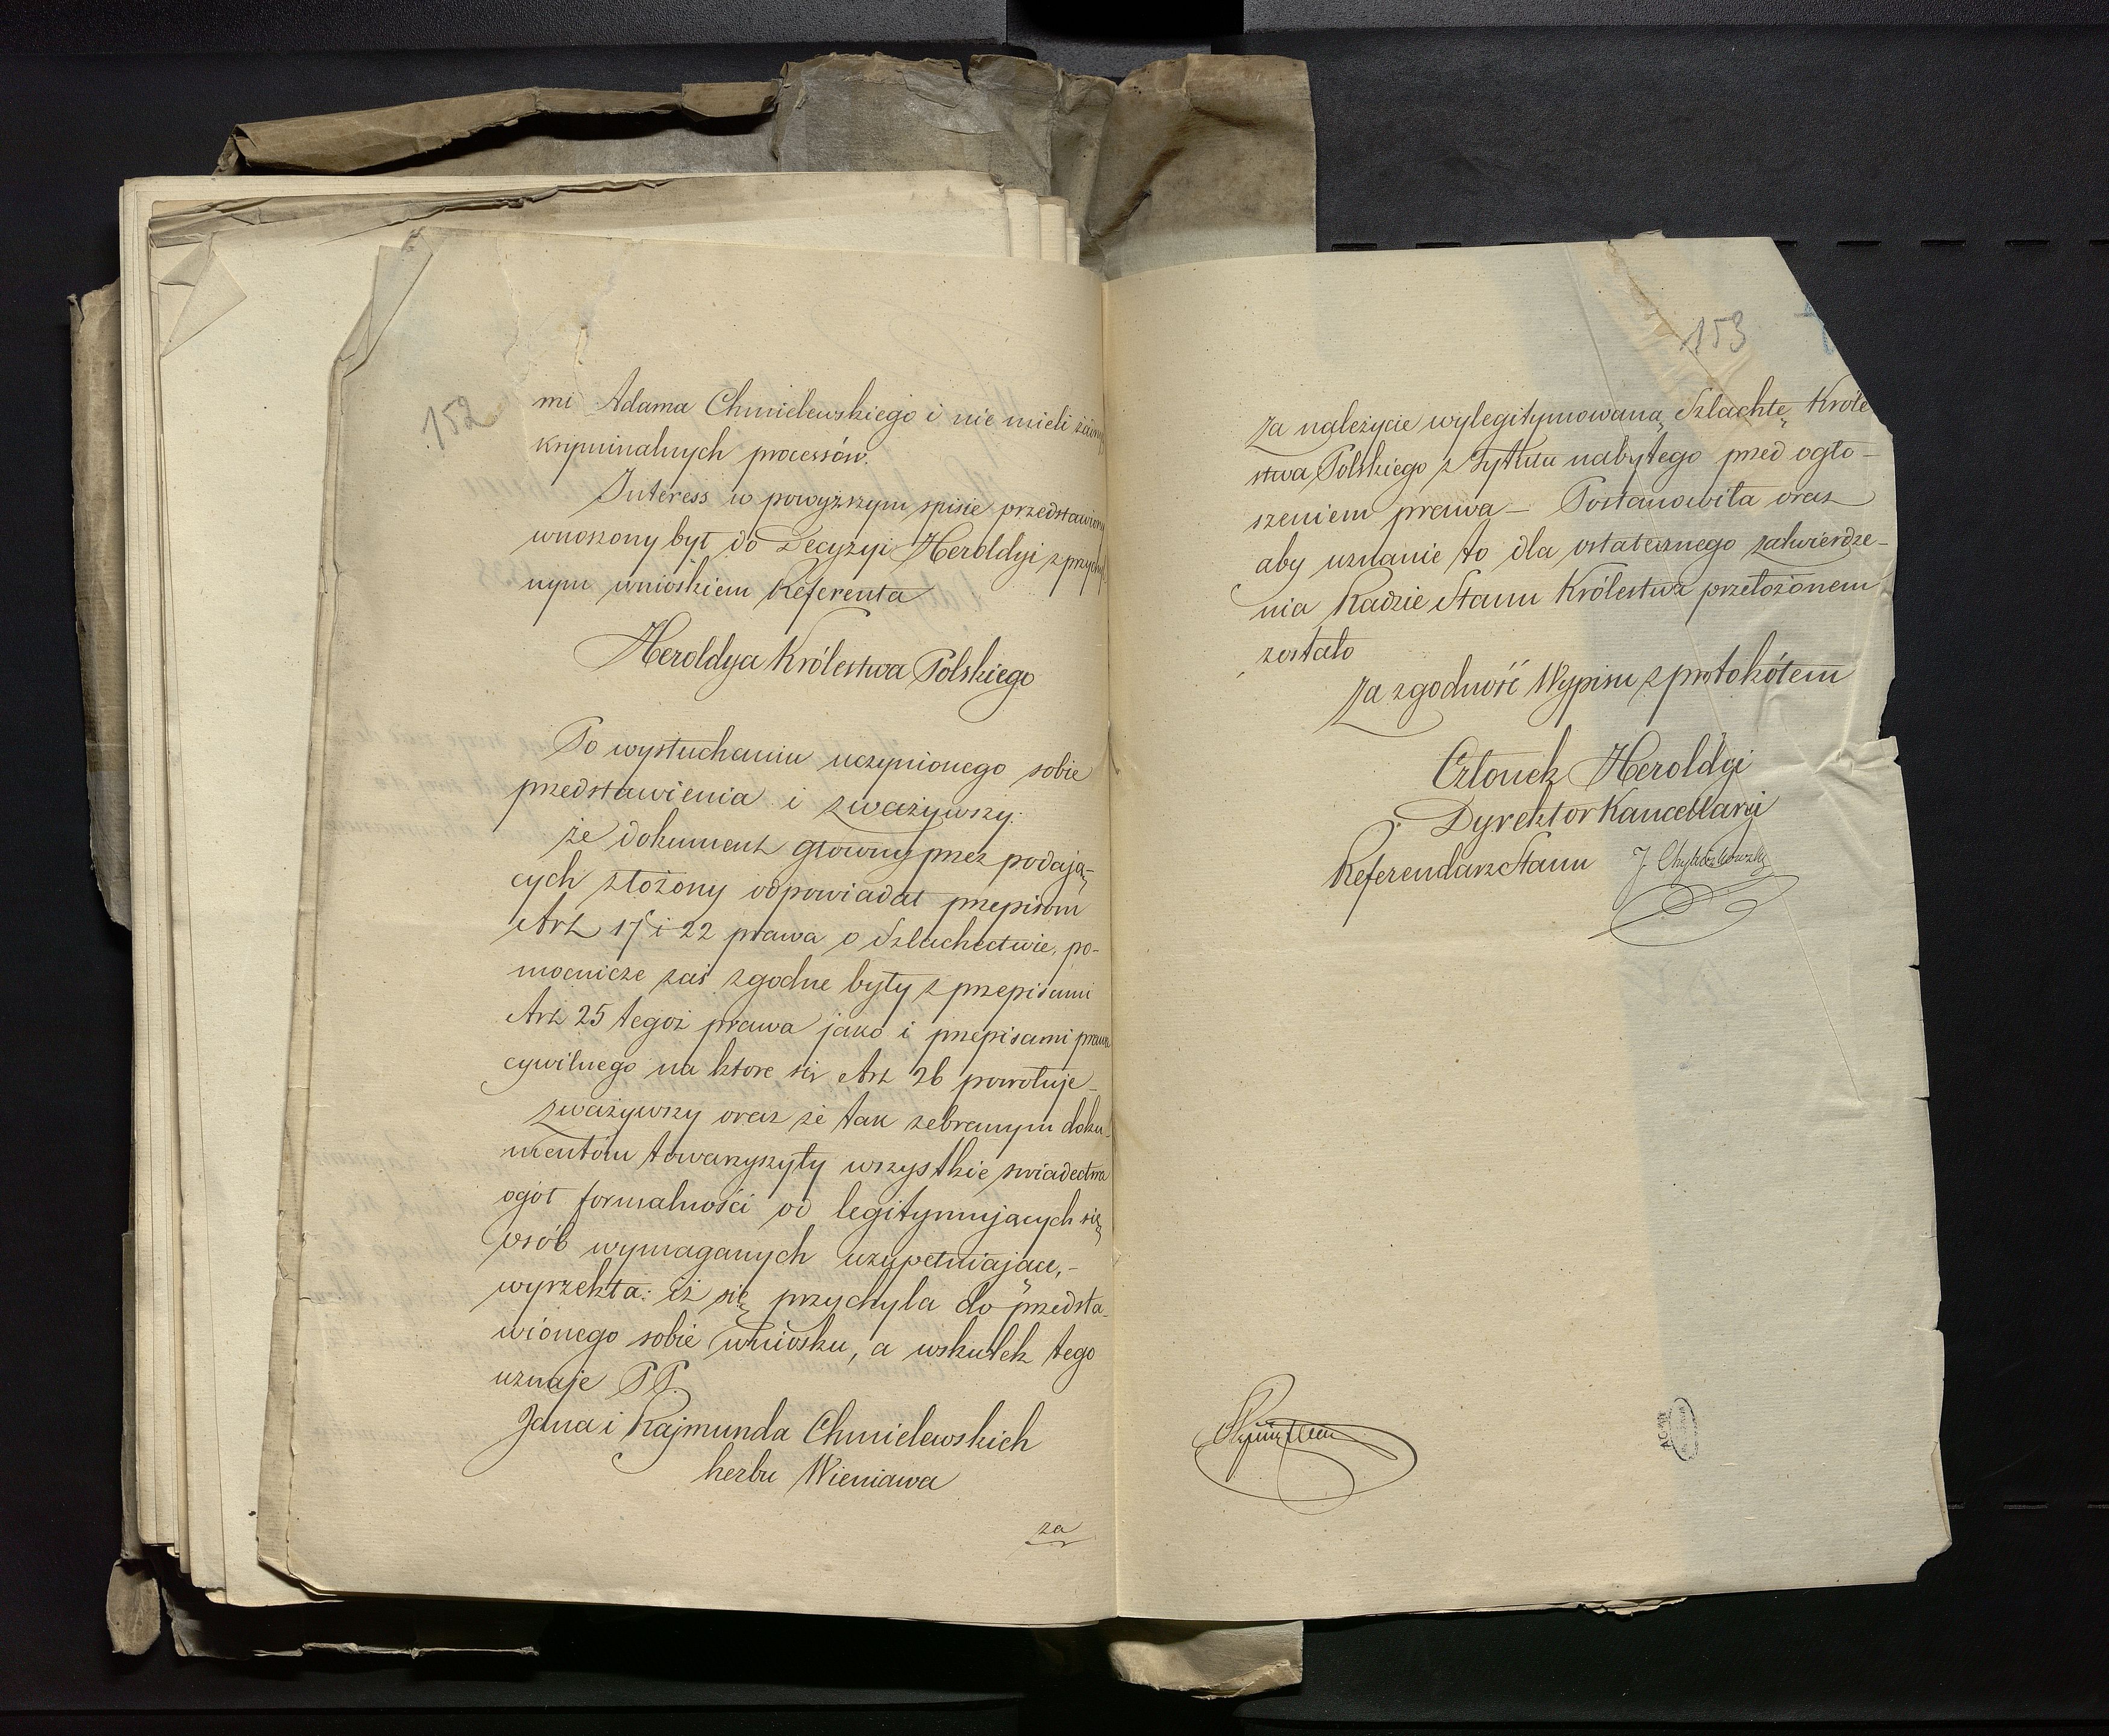 152
mi Adama Chmielewskiego i nie mieli żadnych
kryminalnych processów.
Interess w powyższym spisie przedstawiony
wnoszony był do Decyzyi Heroldyi z przychyl-
nym wnioskiem Referenta
Heroldya Królestwa Polskiego
Po wysłuchaniu uczynionego sobie
przedstawienia i zważywszy:
że dokument główny przez podają-
cych złożony odpowiadał przepisom
Art 17 i 22 prawa o Szlachectwie, po-
mocnicze zaś zgodne były z przepisami
Art 25 tegoż prawa jako i przepisami prawa
cywilnego na ktore się Art 26 powołuje
zważywszy oraz że tak zebranym doku-
mentom towarzyszyły wszystkie swiadectwa
ogół formalności od legitymujących się
osób wymaganych uzupełniające,-
wyrzekła: iż się przychyla do przedsta-
wionego sobie wniosku, a wskutek tego
uznaje PP.
Jana i Rajmunda Chmielewskich
herbu Wieniawa
za
153
Za należycie wylegitymowaną Szlachtę Króle
stwa Polskiego z tytułu nabytego przed ogło-
szeniem prawa - Postanowiła oraz
aby uznanie to dla ostatecznego zatwierdze-
nia Radzie Stanu Królestwa przełożonem
zostało
Za zgodność Wypisu z protokółem
Członek Heroldyi
Dyrektor Kancellaryi
Referendarz Stanu